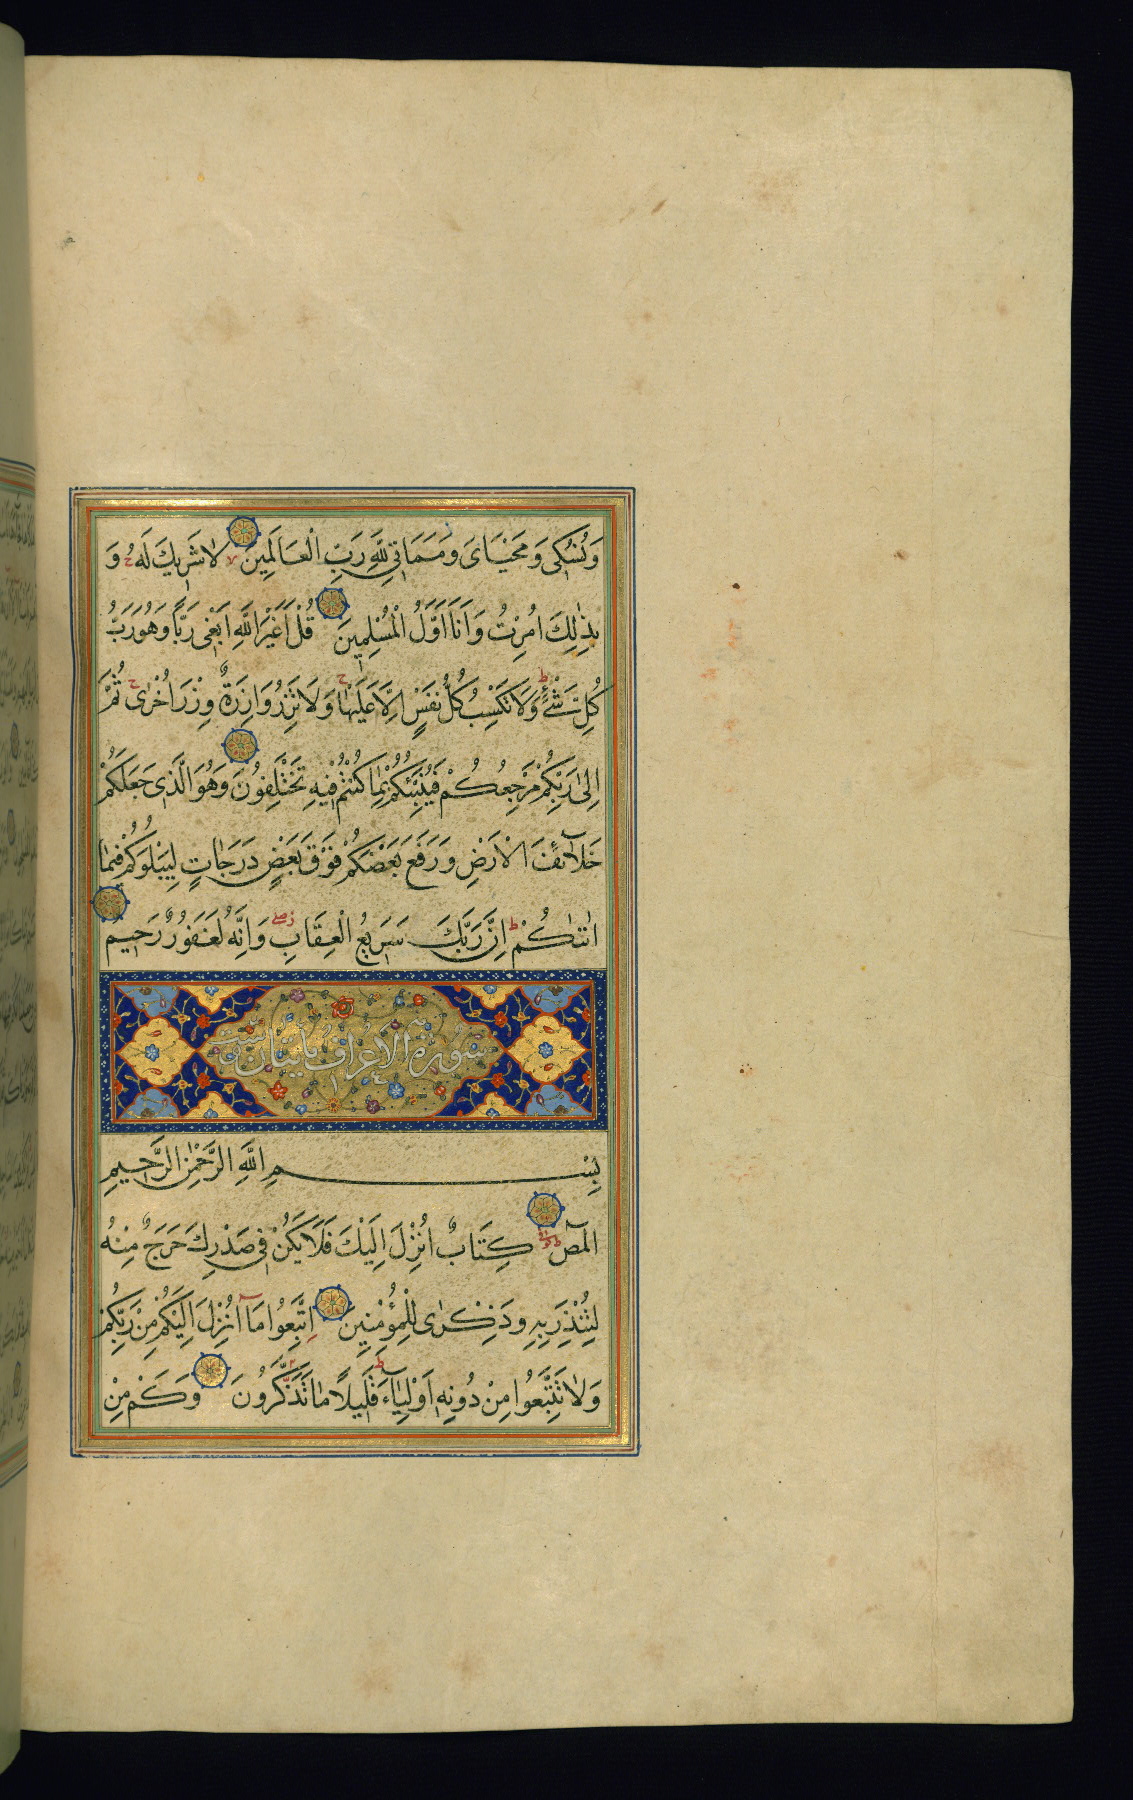 وَنُسُكِى وَمَحْيَاىَ وَمَمَاتِى لِلَّهِ رَبِّ الْعَالَمِينَ لَا شَرِيكَ لَهُ وَ
بِذٰلِكَ اُمِرْتُ وَاَنَا اَوَّلُ الْمُسْلِمِينَ قُلْ اَغَيْرَ اللَّهِ اَبْغِى رَبًّا وَهُوَ رَبُّ
كُلِّ شَىْءٍ وَلَا تَكْسِبُ كُلُّ نَفْسٍ اِلَّا عَلَيْهَا وَلَا تَزِرُ وَازِرَةٌ وِزْرَ اُخْرٰى ثُمَّ
اِلٰى رَبِّكُمْ مَرْجِعُكُمْ فَيُنَبِّئُكُمْ بِمَا كُنْتُمْ فِيهِ تَخْتَلِفُونَ وَهُوَ الَّذِى جَعَلَكُمْ
خَلَآئِفَ الْاَرْضِ وَرَفَعَ بَعْضَكُمْ فَوْقَ بَعْضٍ دَرَجَاتٍ لِيَبْلُوَكُمْ فِيمَا
اٰتٰىكُمْ اِنَّ رَبَّكَ سَرِيعُ الْعِقَابِ وَاِنَّهُ لَغَفُورٌ رَحِيمٌ
سورة الاعراف مايتان وست
بِسْمِ اللَّهِ الرَّحْمٰنِ الرَّحِيمِ
الٓمٓصٓ كِتَابٌ اُنْزِلَ اِلَيْكَ فَلَا يَكُنْ فِى صَدْرِكَ حَرَجٌ مِنْهُ
لِتُنْذِرَ بِهِ وَذِكْرٰى لِلْمُؤْمِنِينَ اِتَّبِعُوا مَآ اُنْزِلَ اِلَيْكُمْ مِنْ رَبِّكُمْ
وَلَا تَتَّبِعُوا مِنْ دُونِهِ اَوْلِيَآءَ قَلِيلًا مَا تَذَكَّرُونَ وَكَمْ مِنْ